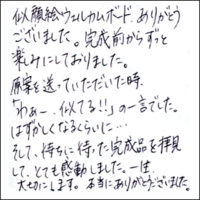 似顔絵ウェルカムボード ありがとう
ございました。完成前からずっと
楽みにしておりました。
原案を送っていただいた時、
「わぁー、似てる!!」の一言でした。
はずかしくなるくらいに…
そして、待ちに待った完成品を拝見
して、とても感動しました。一生、
大切にします。本当にありがとうございました。